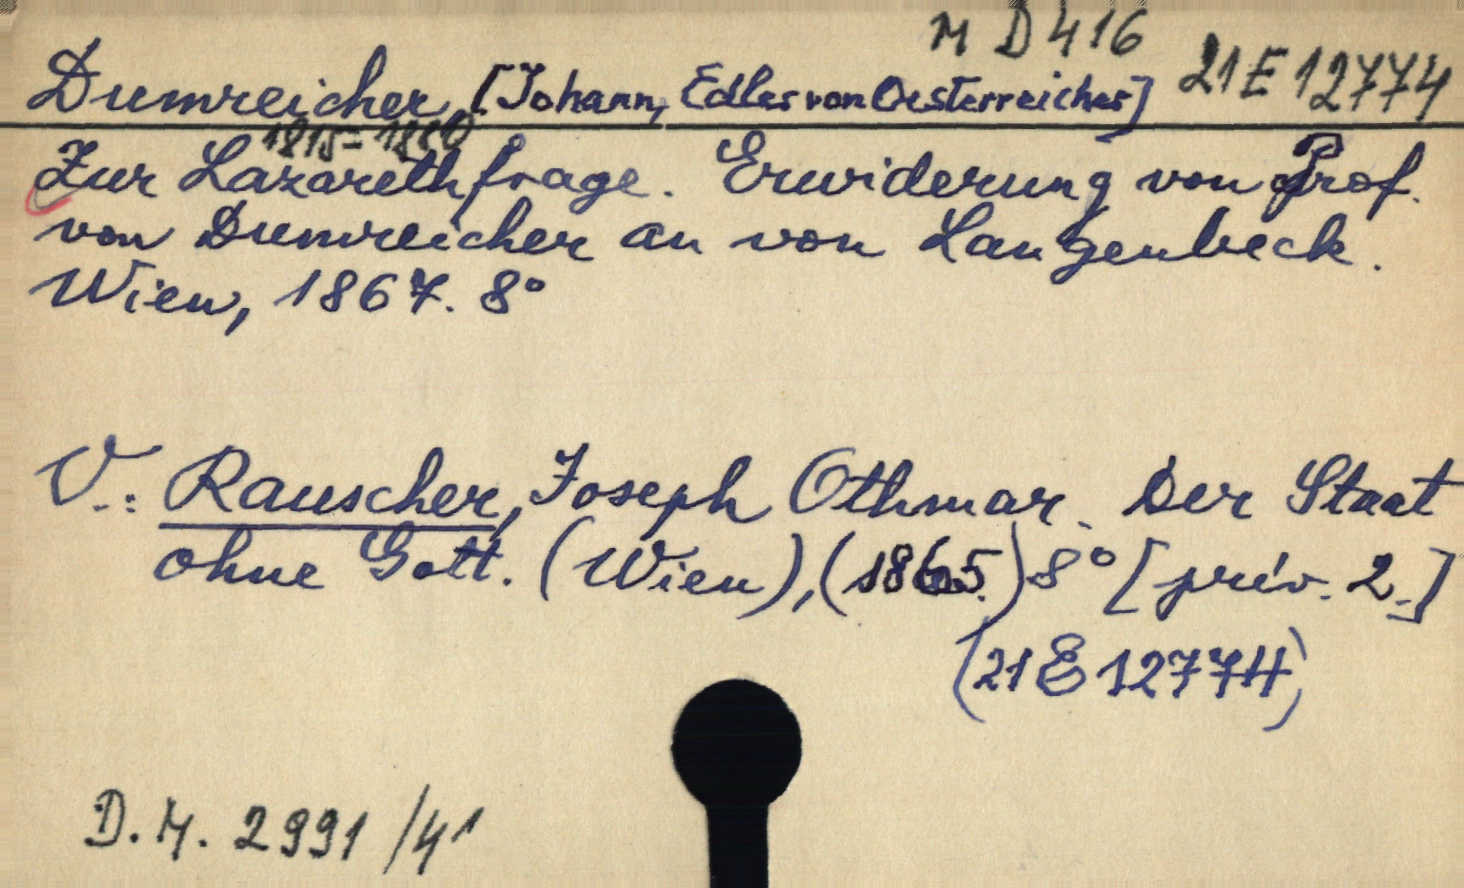 M D 416
Dumreicher, [Johann, Edler von Oesterreicher] 21 E 12774
1815-1880
Zur Lazarethfrage. Erwiderung von Prof.
von Dumreicher an von Langenbeck.
Wien, 1867. 8°
V.: Rauscher, Joseph Othmar. Der Staat
ohne Gott. (Wien), (1865.) 8° [priv. 2.]
(21 E 12774)
D. M. 2991/41